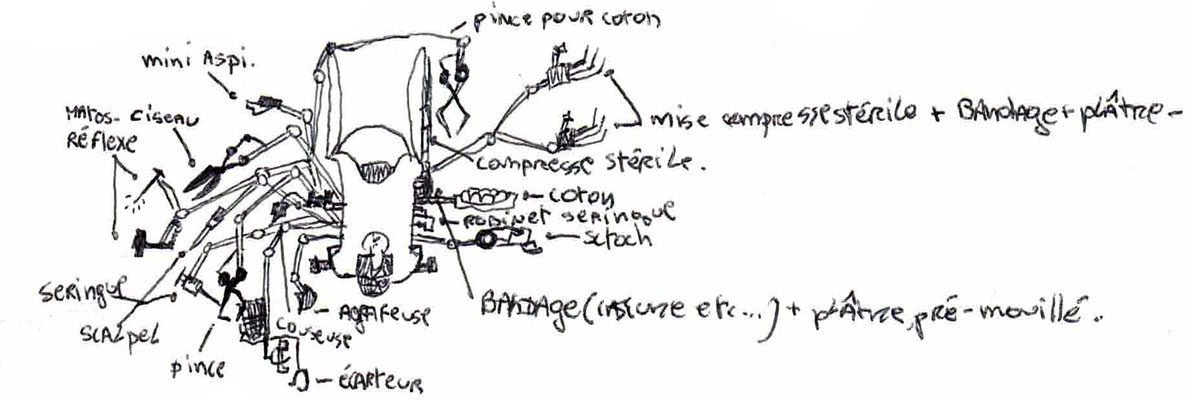 pince pour coton
mini Aspi.
MATOS-
RÉFLEXE
CISEAU
mise compresse stérile + BANDAGE + plÂtre-
compresse stérile.
coton
ROBINET SERINGUE
Sctoch
SERINGUE
SCALPEL
pince
AGRAFEUSE
COUSEUSE
ÉCARTEUR
BANDAGE ( etc...) + plÂtre, pré-mouillé.